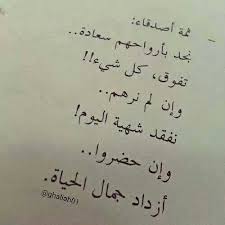 _ ثمة أصدقاء:
نجد بأرواحهم سعادة..
تفوق، كل شيء!!
وإن لم نرهم..
نفقد شهية اليوم!
وإن حضروا..
أزداد جمال الحياة.
@ghaliah01